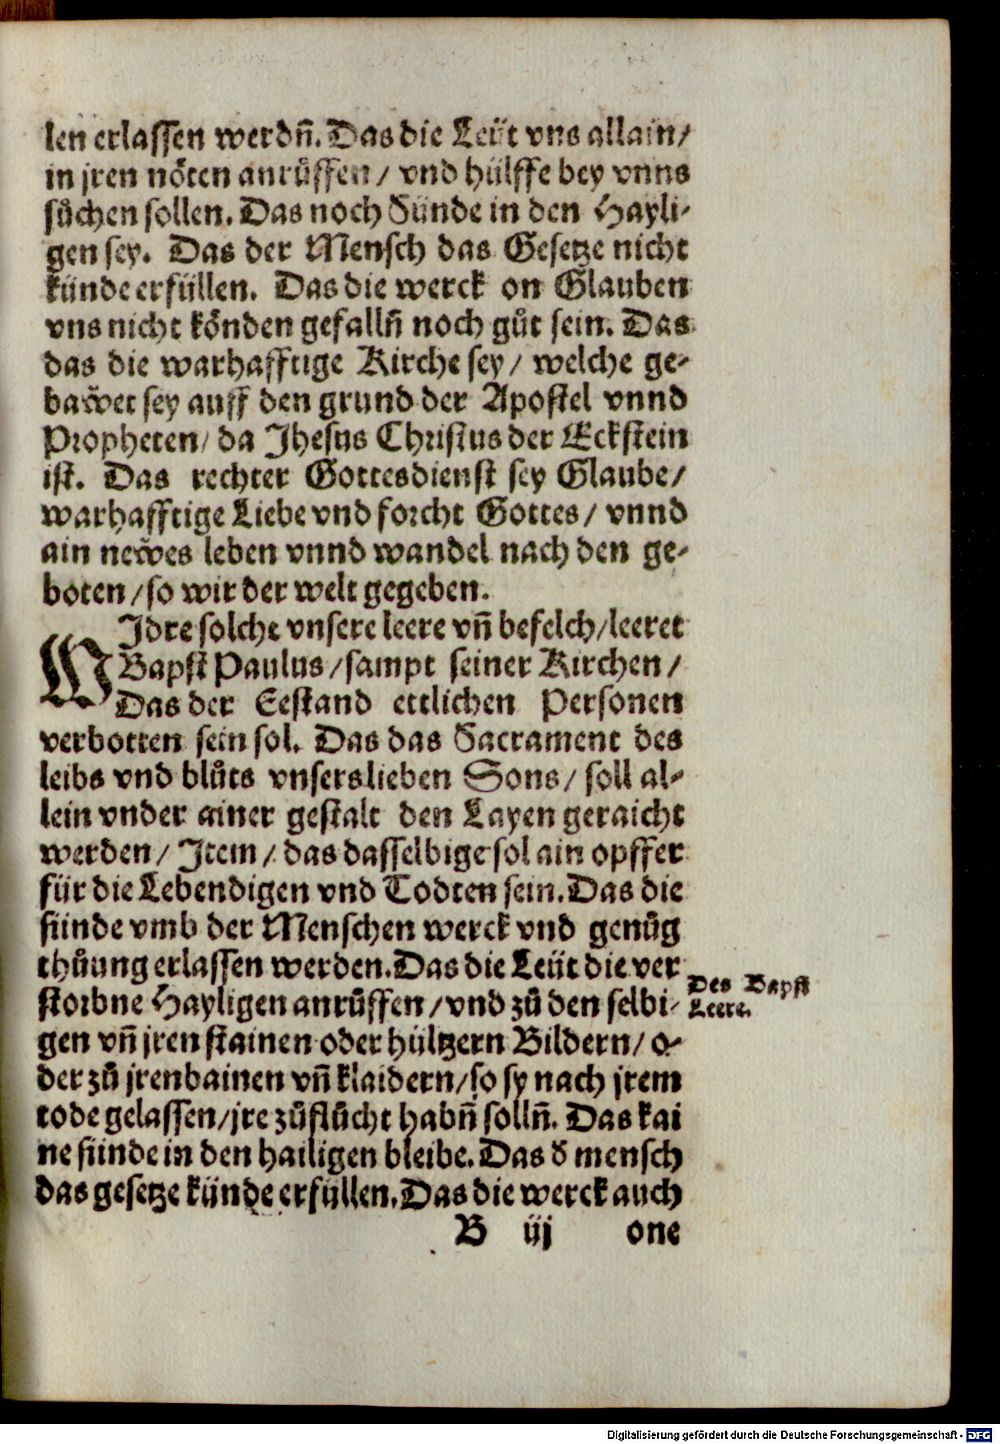 len erlassen werdn̄. Das die Leüt vns allain/
in jren nöten anrůffen / vnd hülffe bey vnns
sůchen sollen. Das noch Sünde in den Hayli⸗
gen sey. Das der Mensch das Gesetze nicht
künde erfüllen. Das die werck on Glauben
vns nicht könden gefalln̄ noch gůt sein. Das
das die warhafftige Kirche sey / welche ge⸗
baẘet sey auff den grund der Apostel vnnd
Propheten / da Jhesus Christus der Eckstein
ist. Das rechter Gottesdienst sey Glaube /
warhafftige Liebe vnd forcht Gottes / vnnd
ain neẘes leben vnnd wandel nach den ge⸗
boten / so wir der welt gegeben.
WJdre solche vnsere leere vn̄ befelch / leeret
Bapst Paulus / sampt seiner Kirchen /
Das der Eestand ettlichen Personen
verbotten sein sol. Das das Sacrament des
leibs vnd blůts vnsers lieben Sons / soll al⸗
lein vnder ainer gestalt den Layen geraicht
werden / Jtem / das dasselbige sol ain opffer
für die Lebendigen vnd Todten sein. Das die
sünde vmb der Menschen werck vnd genůg
thůung erlassen werden. Das die Leüt die ver
storbne Hayligen anrůffen / vnd zů den selbi⸗
gen vn̄ jren stainen oder hültzern Bildern / o⸗
der zů jren bainen vn̄ klaidern / so sy nach jrem
tode gelassen / jre zůflůcht habn̄ solln̄. Das kai
ne sünde in den hailigen bleibe. Das d̕ mensch
das gesetze künde erfüllen. Das die werck auch
B iij one
Des Bapst
Leere.
Digitalisierung gefördert durch die Deutsche Forschungsgemeinschaft - DFG